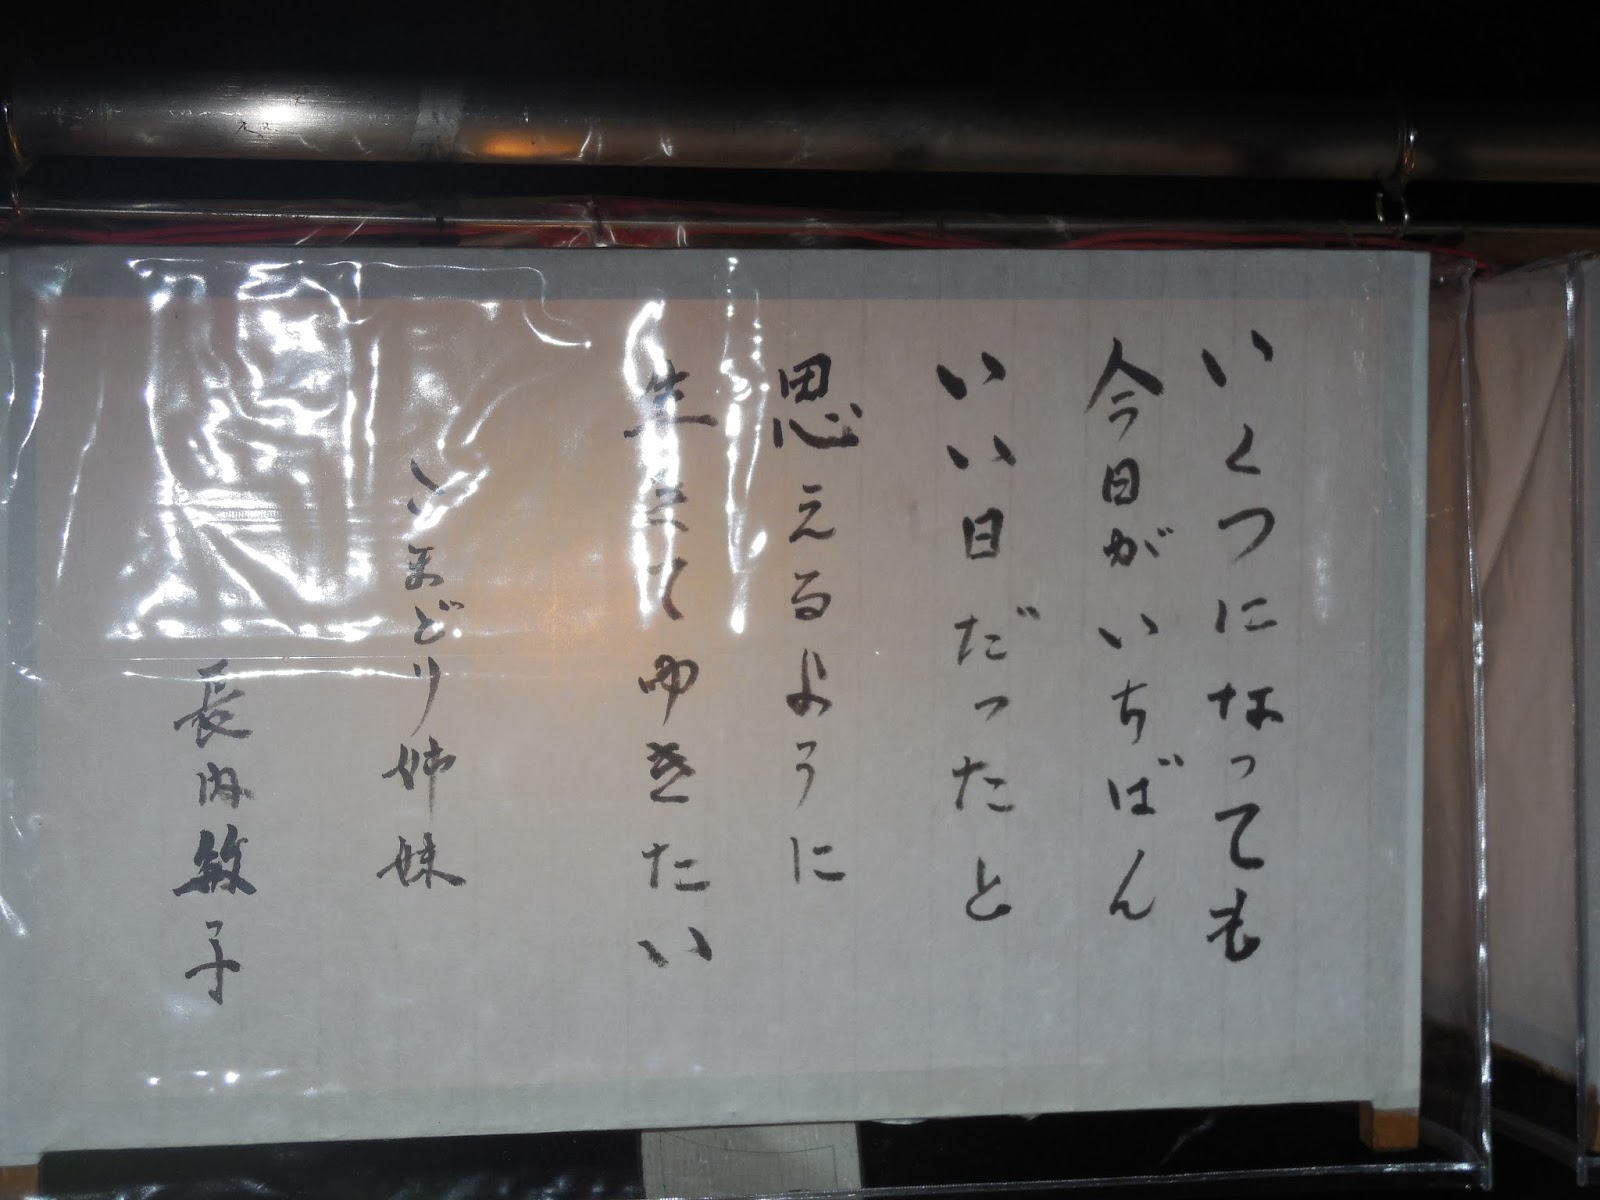 いくつになっても
今日がいちばん
いい日だったと
思えるように
生きてゆきたい
こまどり姉妹
長内敏子